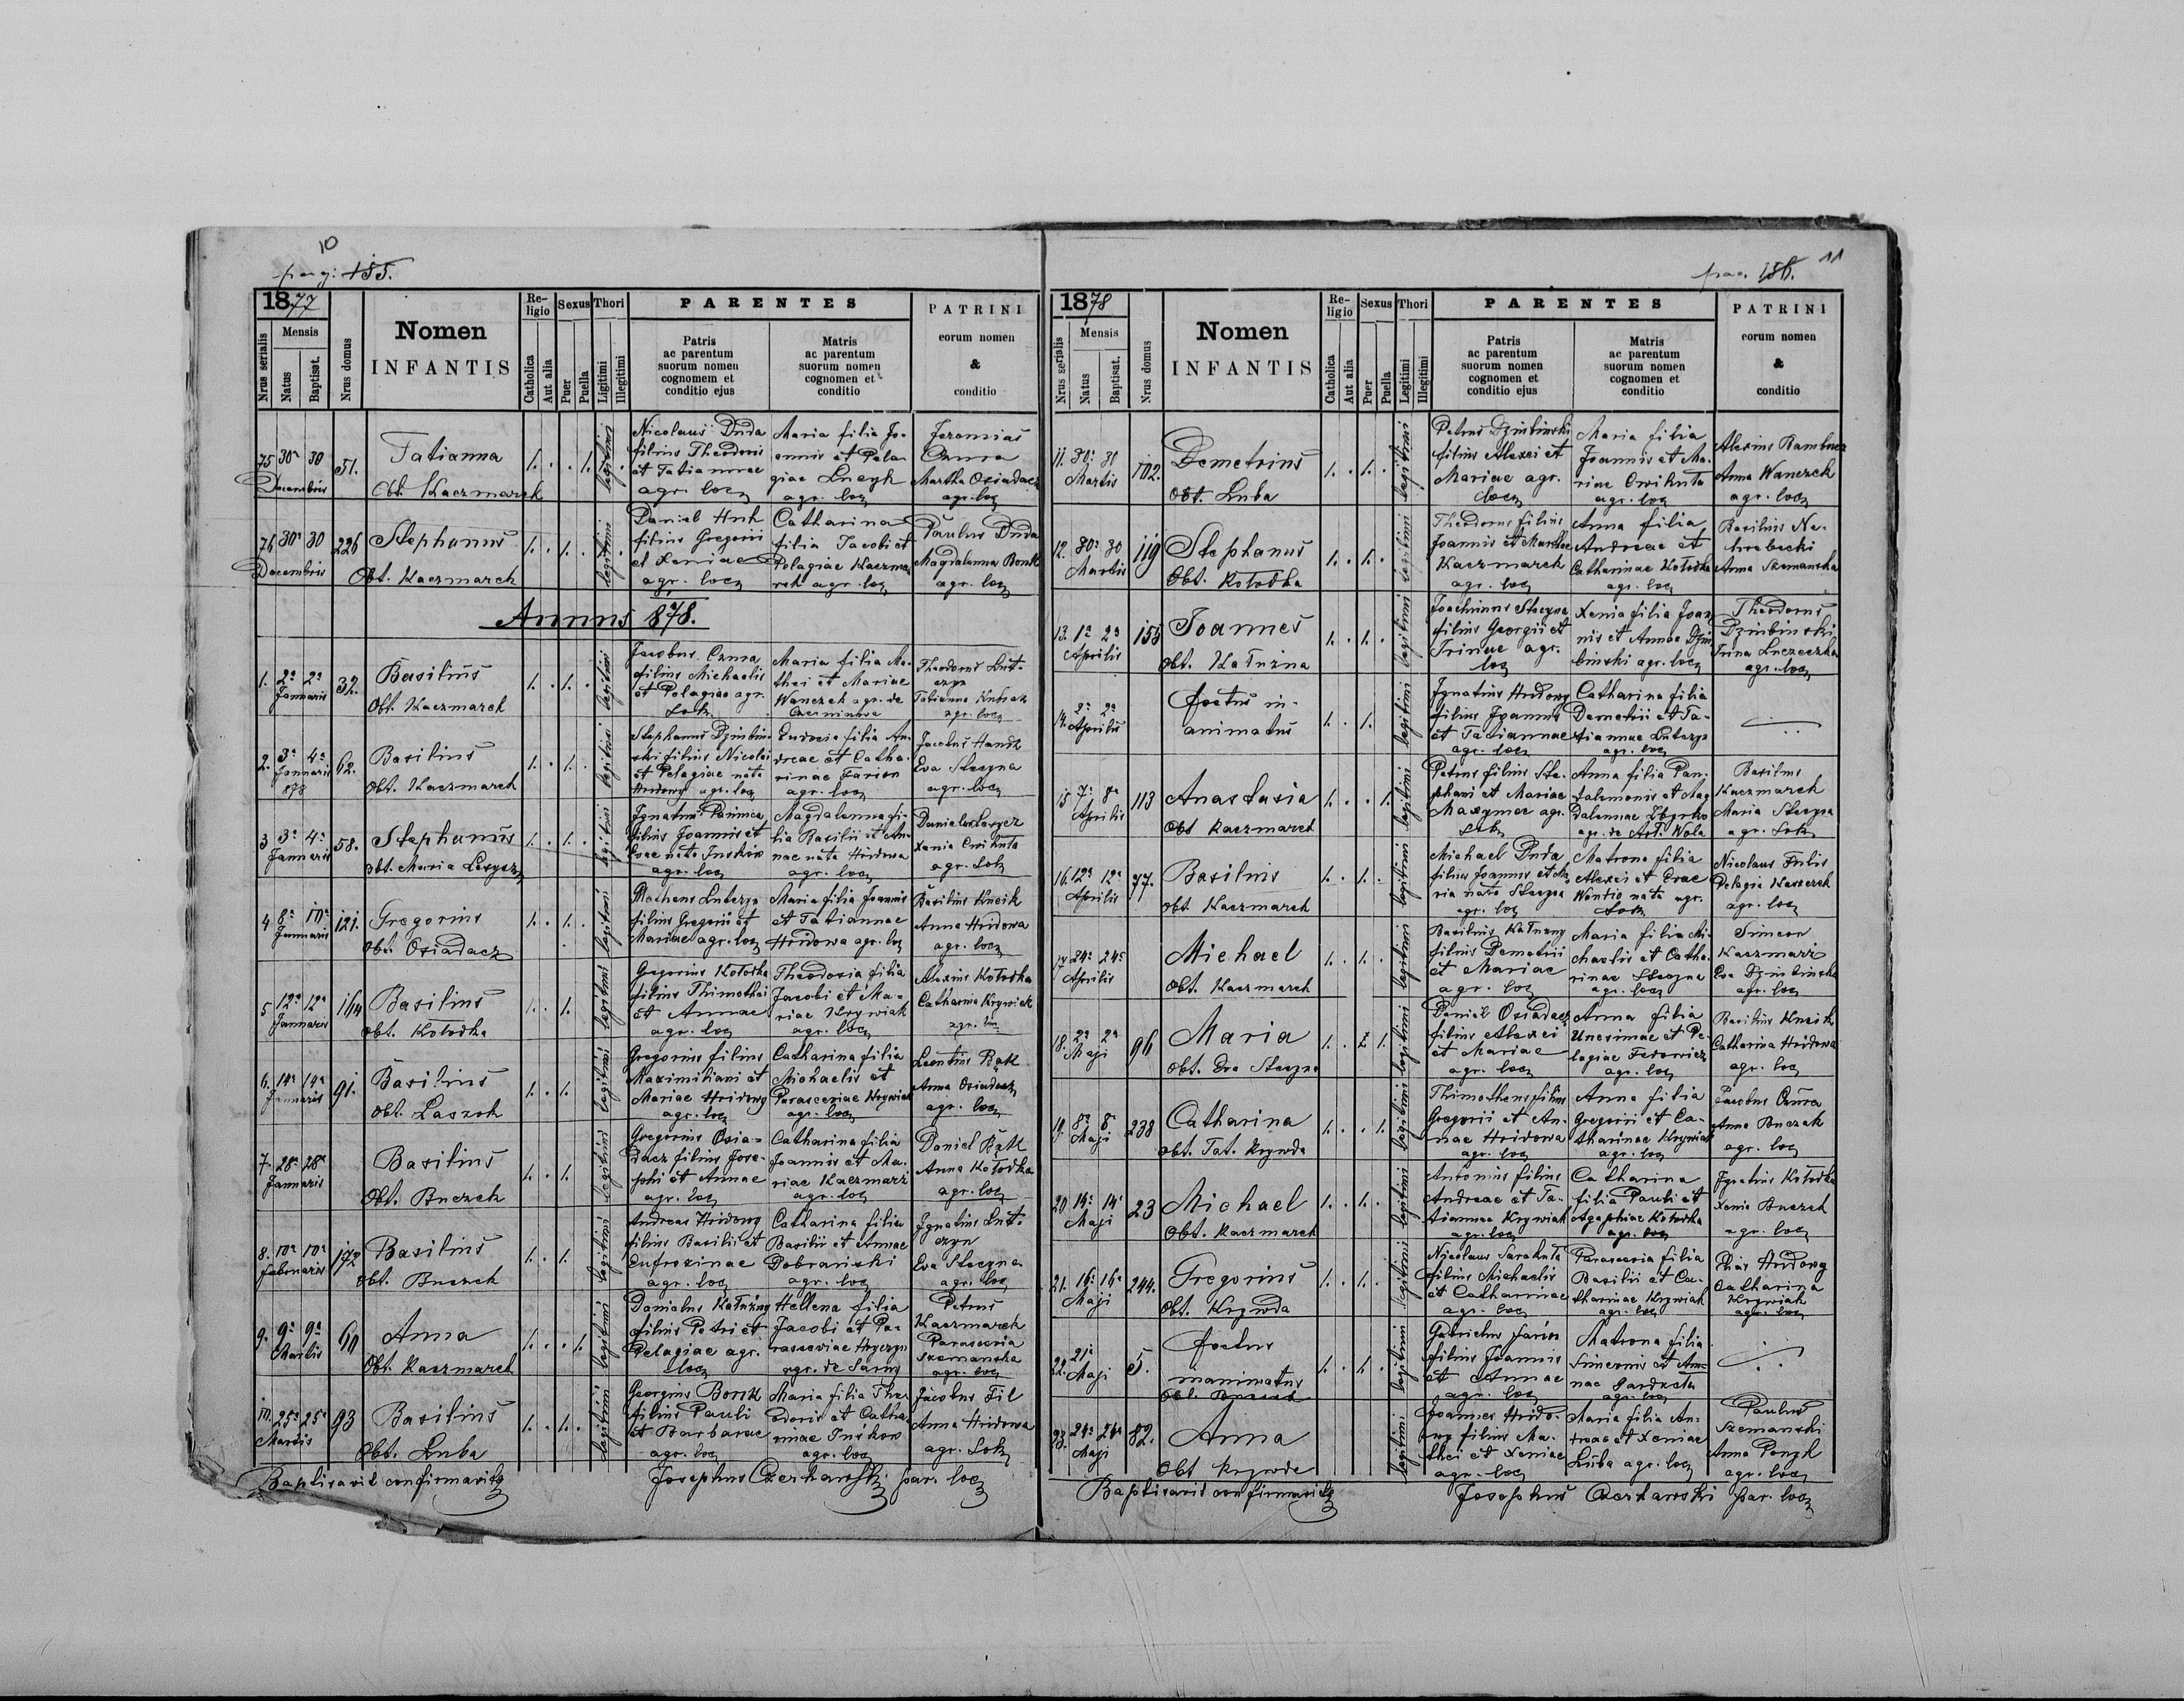 10
pag: 155.
1877
Nrus serialis
Mensis
Natus
Baptisat.
Nrus domus
Nomen
INFANTIS
Religio
Catholica
Aut alia
Sexus
Puer
Puella
Thori
Ligitimi
Illegitimi
PARENTES
Patris
ac parentum
suorum nomen
cognomem et
conditio ejus
Matris
ac parentum
suorum nomen
cognomen et
conditio
PATRINI
eorum nomen
&
conditio
75 30a 30 Decembris 51.
Tatianna
Obt. Kaczmarek
1. . . 1. legitimi
Nicolaus Duda
filius Theodori
et Tatiannae
agr. loc
Maria filia Jo-
annis et Pela-
giae
agr. loc
Jeremias
Czura
Martha Osiadacz
agr. loc
76 30a 30 Decembris 226
Stephanus
Obt. Kaczmarek
1. . 1. . legitimi
Daniel Huk
filius Gregorii
et Xeniae
agr. loc
Catharina
filia Jacobi et
Pelagiae Kaczma
rek agr. loc
Paulus Duda
Magdalenna Bonk
agr. loc
Annus 878.
1. 2a 2a Januaris 32.
Basilius
Obt. Kaczmarek
1. . 1. . legitimi
Jacobus Czura
filius Michaelis
et Pelagiae agr.
Lok
Maria filia Ma-
thei et Mariae
Wanczek agr. de
Theodorus Lut-
czyn
Tatianna
agr. loc
2. 3a 4a Januaris 878 62.
Basilius
Obt. Kaczmarek
1. . 1. . legitimi
Stephanus Dziubin
ski filius Nicolai
et Pelagiae nata
Hrudowy agr. loc
Eudocia filia An-
dreae et Catha-
rinae Farion
agr. loc
Jacobus
Eva Steczyna
agr. loc
3 3a 4a Januaris 58.
Stephanus
obt. Maria
1. . 1. . legitimi
Ignatius
filius Joannis et
Evae nata
agr. loc
Magdalenna fi-
lia Basilii et An-
nae nata Hridowa
agr. loc
Xenia Cwikuła
agr. Lok
4 8a 10a Januaris 121.
Gregorius
Obt. Osiadacz
1. . 1. . legitimi
Matheus Lutczyn
filius Gregorii et
Mariae agr. loc
Maria filia Joannis
et Tatiannae
Hridowa agr. loc
Basilius Kneik
Anna Hridowa
agr. loc
5 12a 12a Januaris 164
Basilius
obt. Kołodka
1. . 1. legitimi
Gregorius Kołodka
filius Thimothei
et Annae
agr. loc
Theodosia filia
Jacobi et Ma-
riae Krywiak
agr. loc
Alexius Kołodka
Catharina Krywiak
agr. loc
6. 14a 14a Januaris 91.
Basilius
Obt. Laszok
1. . 1. legitimi
Gregorius filius
Maximiliani et
Mariae Hridowy
agr. loc
Catharina filia
Michaelis et
Parasceviae Krywiak
agr. loc
Leontius Bąk
Anna Osiadacz
agr. loc
7. 28a 28a Januaris
Basilius
Obt. Buczek
1. . 1. legitimi
Gregorius Osia-
dacz filius Jose-
phi et Annae
agr. loc
Catharina filia
Joannis et Ma-
riae Kaczmarz
agr. loc
Daniel Bąk
Anna Kołodka
agr. loc
8. 10a 10a Februaris 172
Basilius
obt. Buczek
1. . 1. legitimi
Andreas Hridowy
filius Basilii et
Eufrozinae
agr. loc
Catharina filia
Basilii et Annae
Dobrański
agr. loc
Ignatius Lut-
czyn
Eva Steczyna
agr. loc
9. 9a 9a Martis 60
Anna
Obt. Kaczmarek
1. . . 1. legitimi
Danielus Kałużny
filius Petri et
Pelagiae agr.
loc
Hellena filia
Jacobi et Pa-
rasceviae
agr. de
Petrus
Kaczmarek
Parascevia
Szemanska
agr. loc
10. 25a 25a Martis 93
Basilius
Obt. Luba
1. . 1. . legitimi
Georgius Bonk
filius Pauli
et Barbarae
agr. loc
Maria filia Theo
dori et Catha-
rinae
agr. loc
Jacobus Fil
Anna Hridowa
agr. Lok
Baptisavit confirmavitq
Josephus Czerhawski par. loc
pag. 156. 11
1878
Nrus serialis
Mensis
Natus
Baptisat.
Nrus domus
Nomen
INFANTIS
Religio
Catholica
Aut alia
Sexus
Puer
Puella
Thori
Legitimi
Illigitimi
PARENTES
Patris
ac parentum
suorum nomen
cognomen et
conditio ejus
Matris
ac parentum
suorum nomen
cognomen et
conditio
PATRINI
eorum nomen
&
conditio
11. 30a 30 Martis 102.
Demetrius
Obt. Luba
1. . 1. . legitimi
Petrus Dziubinski
filius Alexei et
Mariae agr.
loc
Maria filia
Joannis et Ma-
riae Cwikuła
agr. loc
Alexius
Anna Wanczek
agr. loc
12. 30a 30 Martis 119
Stephanus
Obt. Kołodka
1. . 1. . legitimi
Theodorus filius
Joannis et Marthae
Kaczmarek
agr. loc
Anna filia
Andreae et
Catharinae Kołodka
agr. loc
Basilius Na-
hrebecki
Anna Szemanska
13. 1a 2a Aprilis 155
Joannes
obt. Kałużna
1. . 1. . legitimi
Joachimus Steczyna
filius Georgii et
Irinae agr.
loc
Xenia filia Joan
nis et Annae Dziu
binski agr. loc
Theodorus
Dziubinski
Irina
agr. loc
14. 2a 2a Aprilis
foetus in-
animatus
1. . 1. legitimi
Ignatius Hrudowy
filius Joannis
et Tatiannae
agr. loc
Catharina filia
Demetrii et Ta-
tiannae Lutczyn
agr. loc
15 7a 8a Aprilis 113
Anastasia
Obt Kaczmarek
1. . . 1. legitimi
Petrus filius Ste-
phani et Mariae
Maxymec agr.
Lok
Anna filia Pan-
talemonis et Mag
dalennae
agr. de Wola
Basilius
Kaczmarek
Maria Steczyna
agr. Lok
16. 12a 12a Aprilis 77.
Basilius
obt. Kaczmarek
1. . 1. . legitimi
Michael Duda
filius Joannis et Ma
ria nata Steczyna
agr. loc
Matrona filia
Alexei et Evae
nata agr.
Lok
Nicolaus
Pelagia
agr. loc
17 24a 24a Aprilis
Michael
Obt. Kaczmarek
1. . 1. . legitimi
Basilius Kałużny
filius Demetrii
et Mariae
agr. loc
Maria filia Mi-
chaelis et Catha-
rinae Steczyna
agr. loc
Simeon
Kaczmarz
Eva Dziubinska
agr. loc
18. 2a 2a Maji 96
Maria
obt. Eva Steczyna
1. . 1. legitimi
Daniel Osiadacz
filius Alexei
et Mariae
agr. loc
Anna filia
Unesimae et Pe-
lagiae Fedorowicz
agr. loc
Basilius Kneik
Catharina Hridowa
agr. loc
19. 8a 8a Maji 238
Catharina
obt. Tat. Krywda
1. . . 1. legitimi
Thimotheus filius
Gregorii et An-
nae Hridowa
agr. loc
Anna filia
Gregorii et Ca-
tharinae Krywiak
agr. loc
Jacobus Czura
Anna Buczak
agr. loc
20 14a 14a Maji 23
Michael
Obt. Kaczmarek
1. . 1. . legitimi
Antonius filius
Andreae et Ta-
tiannae Krywiak
agr. loc
Catharina
filia Pauli et
Agaphiae Kołodka
agr. loc
Ignatius Kołodka
Xenia Buczek
agr. loc
21. 16a 16a Maji 244.
Gregorius
Obt. Krywda
1. . 1. . legitimi
Nicolaus
filius Michaelis
et Catharinae
agr. loc
Parascevia filia
Basilii et Ca-
tharinae Krywiak
agr. loc
Elias Hridowy
Catharina
Krywiak
agr. loc
22. 21a Maji 5.
foetus
inanimatus
1. . 1. . legitimi
Gabrielus Farion
filius Joannis
et Annae
agr. loc
Matrona filia
Simeonis et An-
nae
agr. loc
23. 24a 24a Maji 82.
Anna
Obt Krywda
legitimi
Joannes Hrido-
wy filius Ma-
thei et Xeniae
agr. loc
Maria filia An-
dreae et Xeniae
Luba agr. loc
Paulus
Szemanski
Anna
agr. loc
Baptisavit confirmavitq
Josephus Czerhawski par. loc